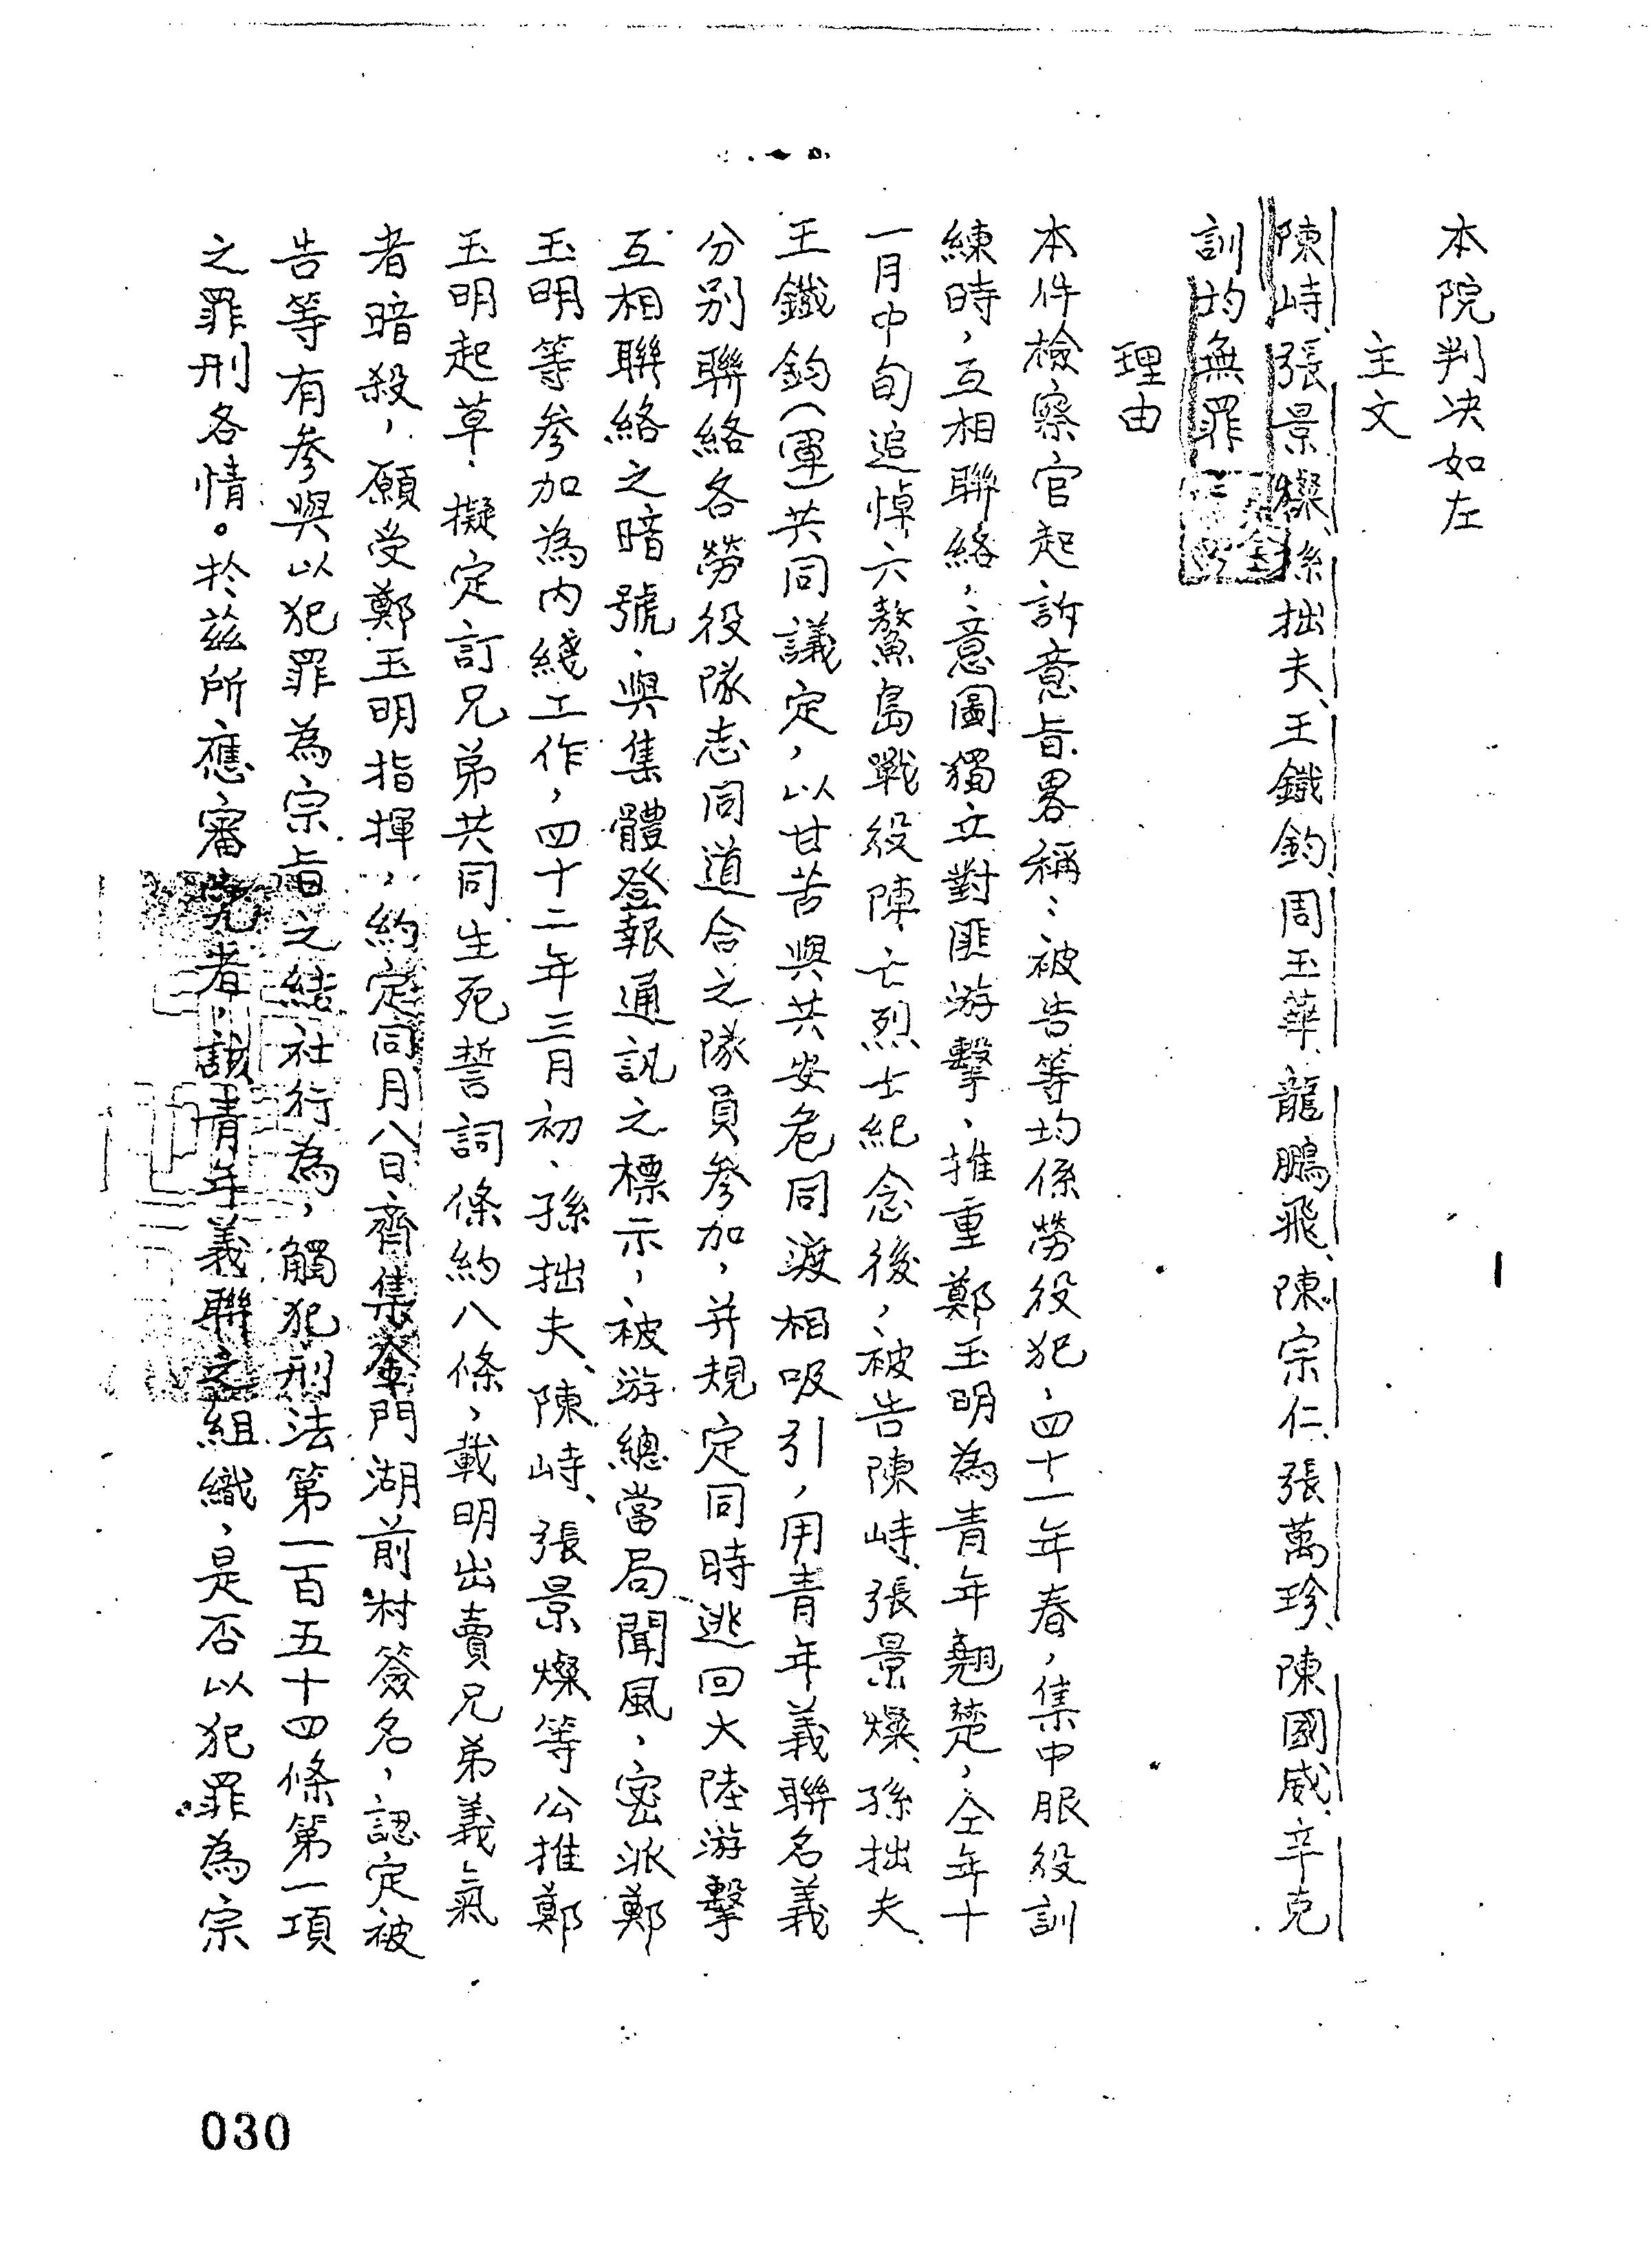 本院判决如左
主文
陳峙、張景燦、孫拙夫、王鐵鈞、周玉華、龍鵬飛、陳宗仁、張萬珍、陳國威、辛克
訓均無罪
理由
本件檢察官起訴意旨畧稱：被告等均係勞役犯、四十一年春，集中服役訓
練時，互相聯絡，意圖獨立對匪游擊、推重鄭玉明為青年翹楚，仝年十
一月中旬追悼六鰲島戰役陣亡烈士紀念後，被告陳峙、張景燦、孫拙夫、
王鐵鈞（軍）共同議定，以甘苦與共安危同渡相吸引，用青年義聯名義
分別聯絡各勞役隊志同道合之隊員參加，并規定同時逃回大陸游擊
互相聯絡之暗號、與集體登報通訊之標示，被游總當局聞風、密派鄭
玉明等參加為內綫工作，四十二年三月初、孫拙夫、陳峙、張景燦等公推鄭
玉明起草、擬定訂兄弟共同生死誓詞條約八條，載明出賣兄弟義氣
者暗殺，願受鄭玉明指揮，約定同月八日齊集金門湖前村簽名，認定被
告等有參與以犯罪為宗旨之結社行為，觸犯刑法第一百五十四條第一項
之罪刑各情。於茲所應審究者，該青年義聯之組織，是否以犯罪為宗
030